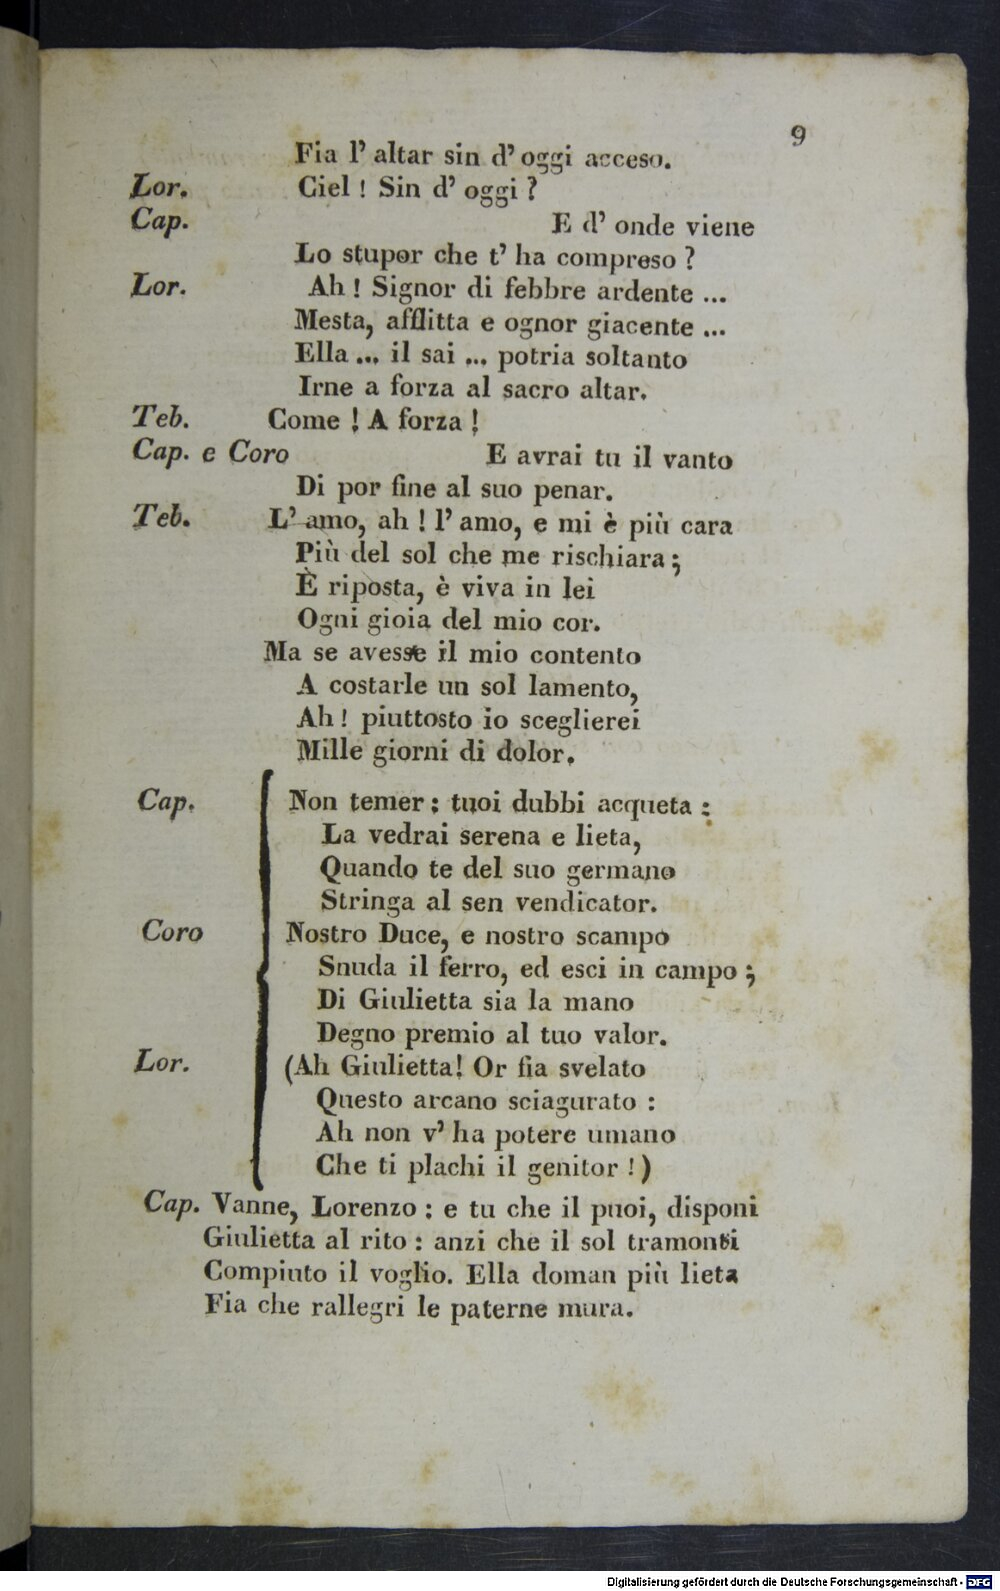 9
Fia l' altar sin d' oggi acceso.
Lor. Ciel ! Sin d' oggi ?
Cap. E d' onde viene
Lo stupor che t' ha compreso ?
Lor. Ah ! Signor di febbre ardente ...
Mesta, afflitta e ognor giacente ...
Ella ... il sai ... potria soltanto
Irne a forza al sacro altar.
Teb. Come ! A forza !
Cap. e Coro E avrai tu il vanto
Di por fine al suo penar.
Teb. L' amo, ah ! l' amo, e mi è più cara
Più del sol che me rischiara ;
È riposta, è viva in lei
Ogni gioia del mio cor.
Ma se avesse il mio contento
A costarle un sol lamento,
Ah ! piuttosto io sceglierei
Mille giorni di dolor.
Cap. Non temer ; tuoi dubbi acqueta :
La vedrai serena e lieta,
Quando te del suo germano
Stringa al sen vendicator.
Coro Nostro Duce, e nostro scampo
Snuda il ferro, ed esci in campo ;
Di Giulietta sia la mano
Degno premio al tuo valor.
Lor. (Ah Giulietta! Or fia svelato
Questo arcano sciagurato :
Ah non v' ha potere umano
Che ti plachi il genitor !)
Cap. Vanne, Lorenzo : e tu che il puoi, disponi
Giulietta al rito : anzi che il sol tramonti
Compiuto il voglio. Ella doman più lieta
Fia che rallegri le paterne mura.
Digitalisierung gefördert durch die Deutsche Forschungsgemeinschaft - DFG